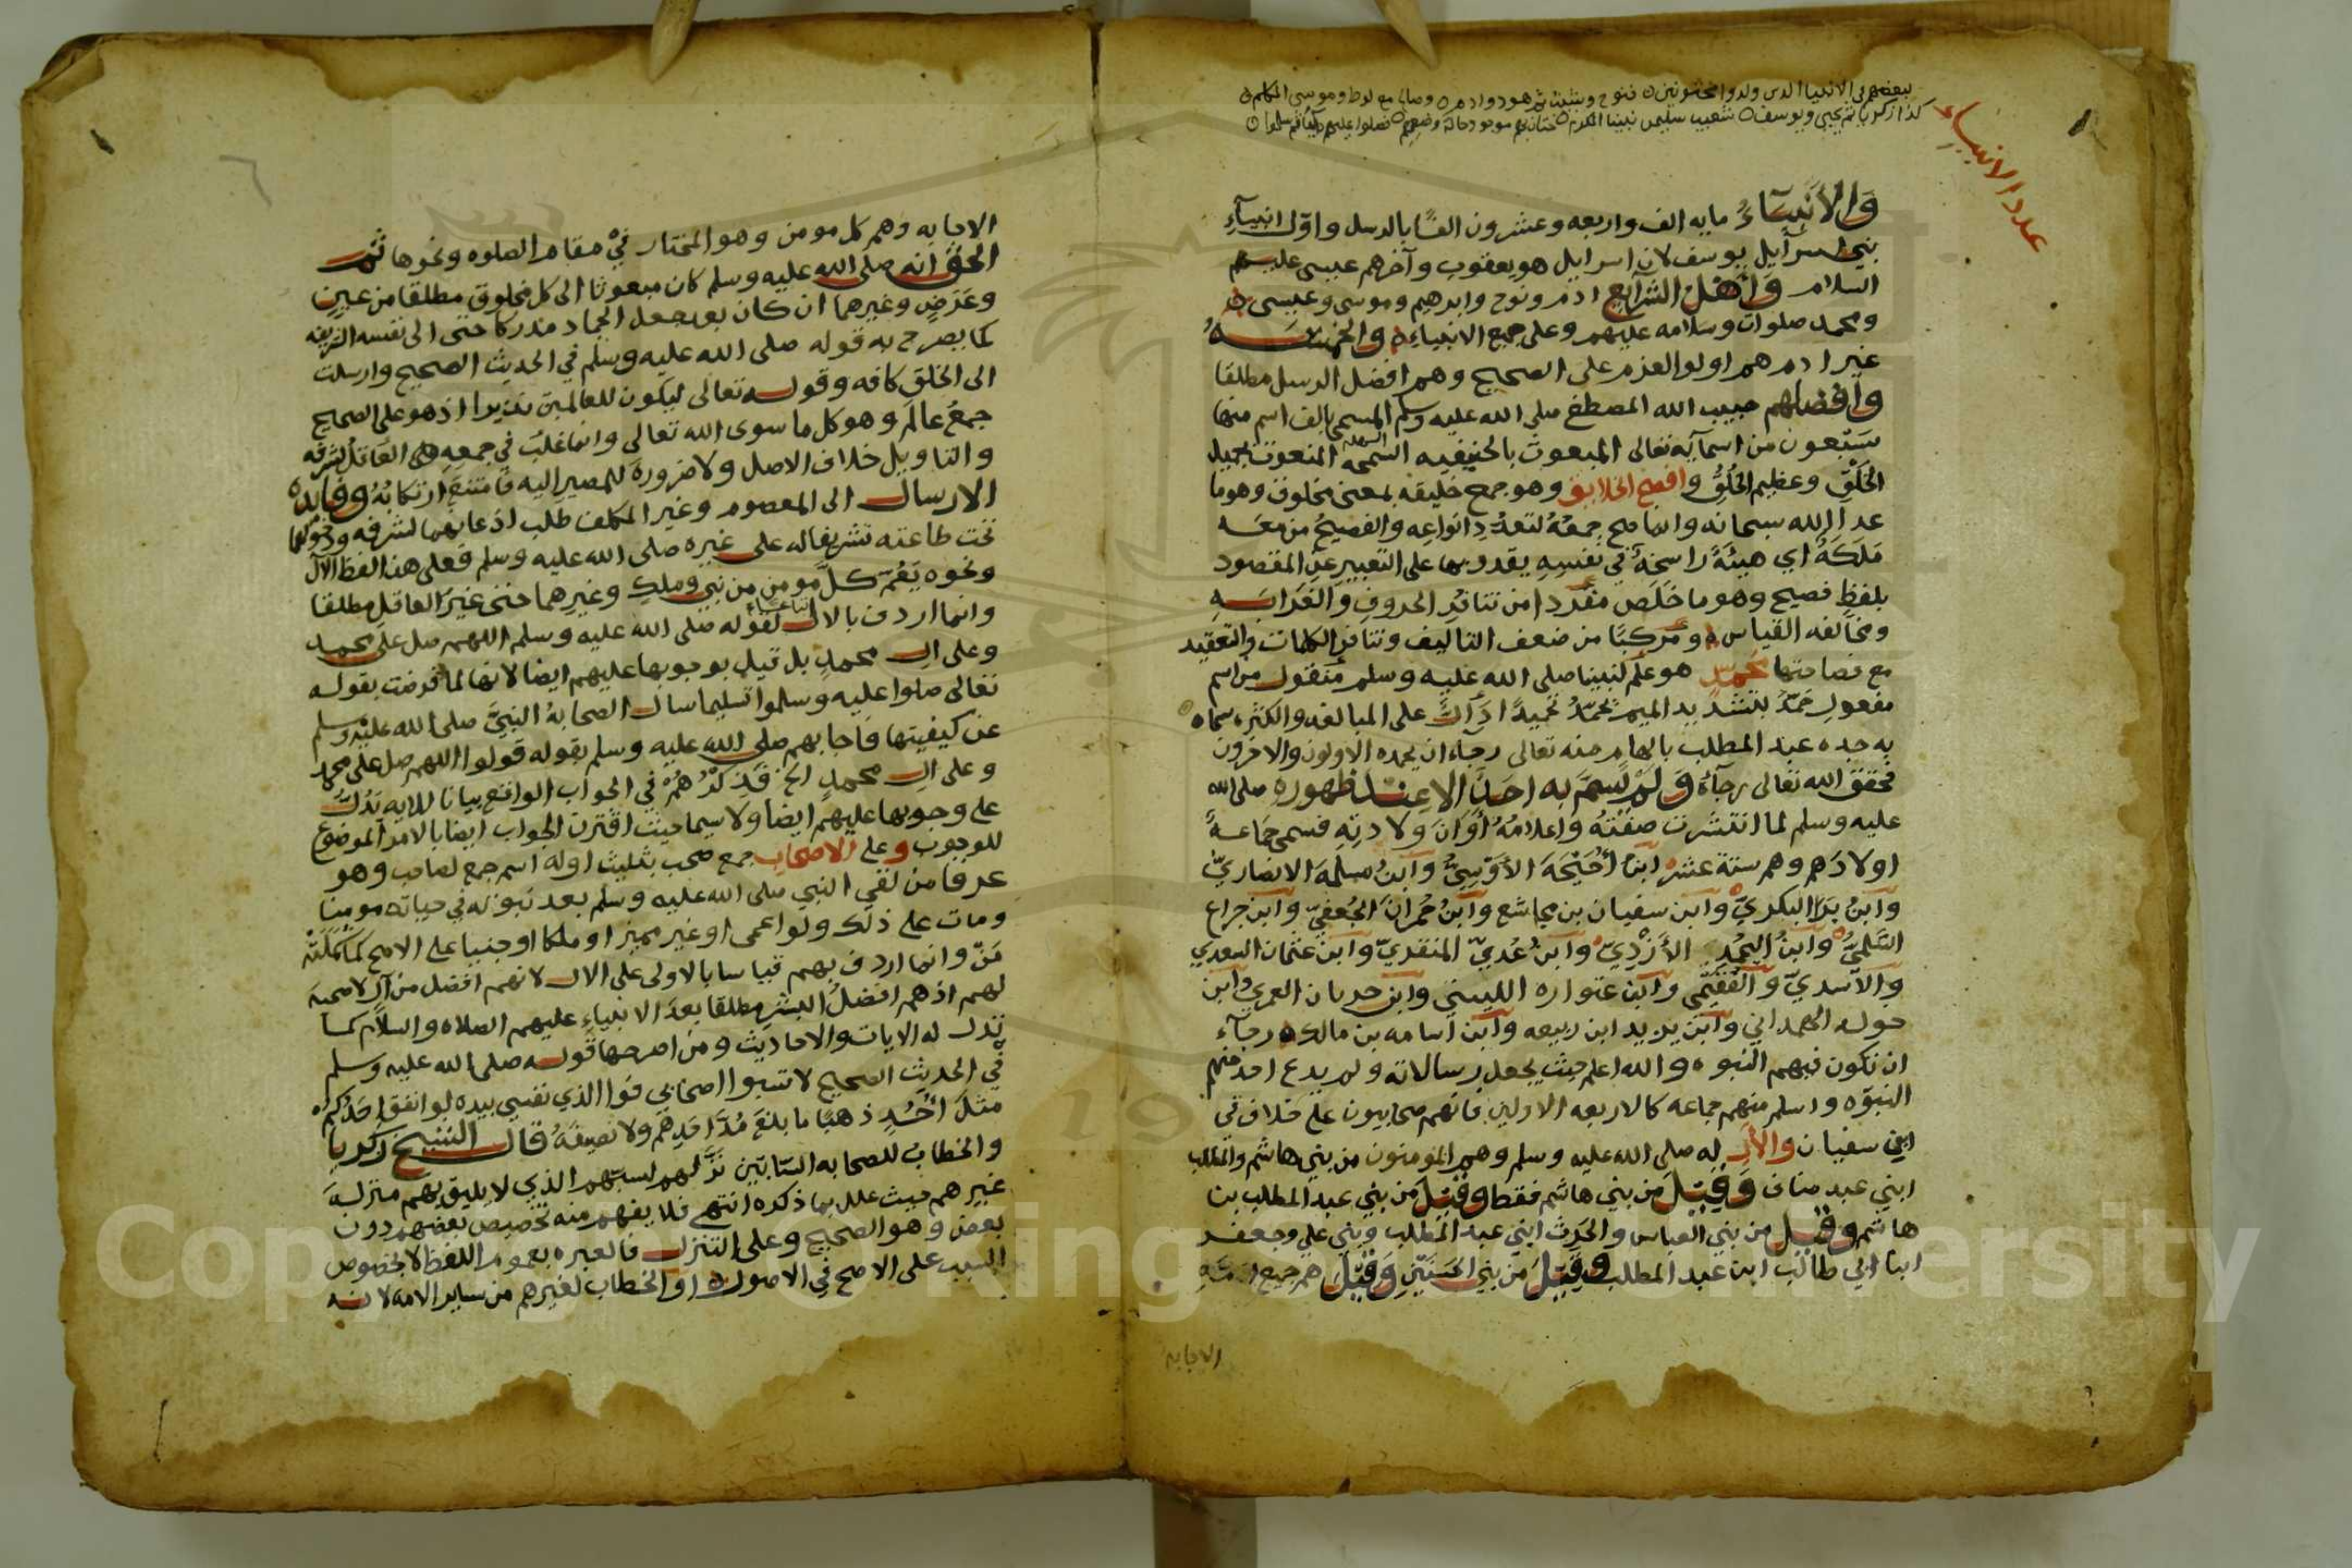 لبعضهم في الانبياء الذين ولدوا مختونين ٥ فنوح وشيث ثم هود وادم ٥ وصالح مع لوط وموسى المكلم ٥
كذا زكريا ثم يحيى ويوسف ٥ شعيب سليمن نبينا المكرم ٥ ختان موجود حالة وضعهم ٥ فصلوا عليهم وسلموا ٥
عدد الانبياء
والأنبياءُ مايه الف واربعه وعشرون الفًا بالرسل واوّل انبيآءِ
بني اسرآييل يوسف لان اسراييل هو يعقوب وآخرهم عيسى عليهم
السلام وَأهْلُ الشرآيعِ ادم ونوح وابرهيم وموسى وعيسى
ومحمد صلوات وسلامه عليهم وعلى جميع الانبياءِ والخمسَـــةُ
غير ادم هم اولوا العزم على الصحيح وهم افضل الرسل مطلقا
وافضلهم حبيب الله المصطفى صلى الله عليه وسلم المسمى بالف اسم منها
سَبْعون من اسمآيه تعالى المبعوث بالحنيفيه السمحه السهله المنعوت بجميل
الخَلْقِ وعظيم الخُلُقِ وافصح الخلايق وهو جمع خليقه بمعنى مخلوق وهو ما
عدا الله سبحانه وانما صح جمعُهُ لتعدُّدِ انواعِه والفصيحُ من معَـه
مَلَكَةٌ اي هيئَةٌ راسخةٌ في نفسِهِ يقدر بها على التعبيرِ عن المقصود
بلفظٍ فصيح وهو ما خَلَص مفردا من تنافُرِ الحروفِ والغَرَابَـهِ
ومخالفه القياس ومركبًا من ضعف التاليف وتنافر الكلمات والتعقيد
مع فصاحتها محمدٍ هو علم لنبينا صلى الله عليه وسلم منقول من اسم
مفعولِ حَمَّدَ بتشديد الميم يُحَمِّدُ تحميدًا دَالٌّ على المبالغه والكثره سماه
به جده عبد المطلب بالهام منه تعالى رجآءَ ان يحمده الاولون والاخرون
فحقق الله تعالى رجآءَهُ وَلَمْ يُسَمَّ به احَدٌ الا عِنْد ظهوره صلى الله
عليه وسلم لما انتشرت صِفَتُهُ واعلامُهُ أَوَانَ ولادتِهِ فسمى جَمَاعَـةٌ
اولادَهم وهم ستة عشر ابنُ أُحَيْحَةَ الأوْسِيُّ وابنُ مسلمةَ الانصاريّ
وابنُ بَرَا البكريّ وابن سفيان بن مجاشع وابنُ حُمرانَ الجُعفيّ وابن خزاع
السُّلَميّ وابنُ اليُحْمِد الأزْدِيّ وابن عُديّ المنقذيّ وابن عثمان السعدي
والاسديّ والفُقَيْمي وابن عتواره الليثي وابن حرمان العمري وابن
خوله الهمداني وابن يزيد ابن ربيعه وابن اسامه بن مالك رجآءَ
ان تكون فيهم النبوه والله اعلم حيث يجعل رسالاته ولم يدع احد منهم
النبوّه واسلم منهم جماعه كالاربعه الاولين فانهم صحابيون على خلاف في
ابن سفيان والأل له صلى الله عليه وسلم وهم المومنون من بني هاشم والمطلب
ابني عبد مناف وَقِيْلَ من بني هاشم فقط وَقِيْلَ من بني عبد المطلب بن
هاشم وقيل من بني العباس والحَرِث ابني عبد المطلب وبني علي وجعفر
ابنا ابي طالب ابن عبد المطلب وَقِيْلَ من بني الحسَنَيْنِ وَقِيْلَ هم جميع امّة
الاجابه
الاجابه وهم كل مومن وهو المختار فيْ مقام الصلوه ونحوها ثم
الحق انه صلى الله عليه وسلم كان مبعوثا الى كل مخلوق مطلقا من عينٍ
وعَرَضٍ وغيرهما ان كان بعد جعل الجماد مدركا حتى الى نفسه الشريفه
كما يصرح به قوله صلى الله عليه وسلم في الحديث الصحيح وارسلت
الى الخلق كافه وقوله تعالى ليكون للعالمين نذيرا اذ هو على الصحيح
جمعُ عالَمٍ وهو كل ما سوى الله تعالى وانما غلب في جمعه العَاقلُ لشرفه
والتاويل خلاف الاصل ولا ضرورة للمصير اليه فامتنع ارتكابُهُ وفايدة
الارسال الى المعصوم وغير المكلف طلب اذعانهما لشرفه ودخولهما
تحت طاعته تشريفا له على غيره صلى الله عليه وسلم فعلى هذا لفظ الآل
ونحوه يَعُمّ كلَّ مومن من نبي وملك وغيرهما حتى غيرَ العاقلِ مطلقا
وانما اردف بالال اتباعًا لقوله صلى الله عليه وسلم اللهم صل على محمد
وعلى ال محمد بل قيل بوجوبها عليهم ايضا لانها لما فرضت بقوله
تعالى صلوا عليه وسلموا تسليما سال الصحابةُ النبيَّ صلى الله عليه وسلم
عن كيفيتها فاجابهم صلى الله عليه وسلم بقوله قولوا اللهم صل على محمد
وعلى ال محمدٍ الخ فَذِكْرُهُمْ في الجواب الواقع بيانا للايه يَدُلُّ
على وجوبها عليهم ايضا ولا سيما حيث اقترن الجواب ايضا بالامر الموضوع
للوجوب وعلى الاصحاب جمع صحب بثليث اوله اسم جمع لصاحب وهو
عرفا من لقي النبي صلى الله عليه وسلم بعد نبوته في حياته مومنا
ومات على ذلك ولو اعمى او غير مميز او ملكا او جنيا على الاصح كما
مَرّ وانما اردف بهم قياسا بالاولى على الال لانهم افضل من آلٍ لا صحبةَ
لهم اذ هم افضلُ البشرِ مطلقا بعدَ الانبياءِ عليهم الصلاه والسلام كما
تدل له الايات والاحاديث ومن اصرحها قوله صلى الله عليه وسلم
في الحديث الصحيح لا تسبوا اصحابي فوا الذي نفسي بيده لو انفق احَدُكم
مثلَ أُحُدٍ ذهبًا ما بلغَ مُدَّ احَدِهم ولا نصيفَهُ قال الشيخ زكريا
والخطابُ للصحابه السّابّين نزَّلهم لسبّهم الذي لا يليق بهم منزلـةَ
غيرهم حيث علل بما ذكره انتهى فلا يفهم منه تخصيص بعضهم دون
بعض وهو الصحيح وعلى التنزل فالعبره بعموم اللفظ لا بخصوص
السبب على الاصح في الاصول او الخطاب لغيرهم من ساير الامه لانه
Copyright © King Saud University